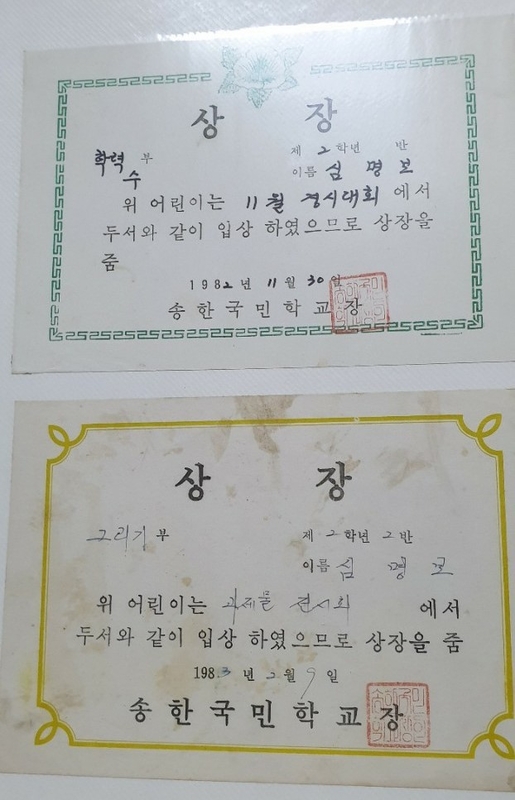 상 장
학력 부
제 2 학년 반
수
이름 심 명 보
위 어린이는 11월 경시대회 에서
두서와 같이 입상 하였으므로 상장을
줌
1982 년 11 월 30 일
송 한 국 민 학 교 장
상 장
그리기 부
제 2 학년 2 반
이름 심 명 보
위 어린이는 과제물 전시회 에서
두서와 같이 입상 하였으므로 상장을 줌
1983 년 2 월 9 일
송 한 국 민 학 교 장